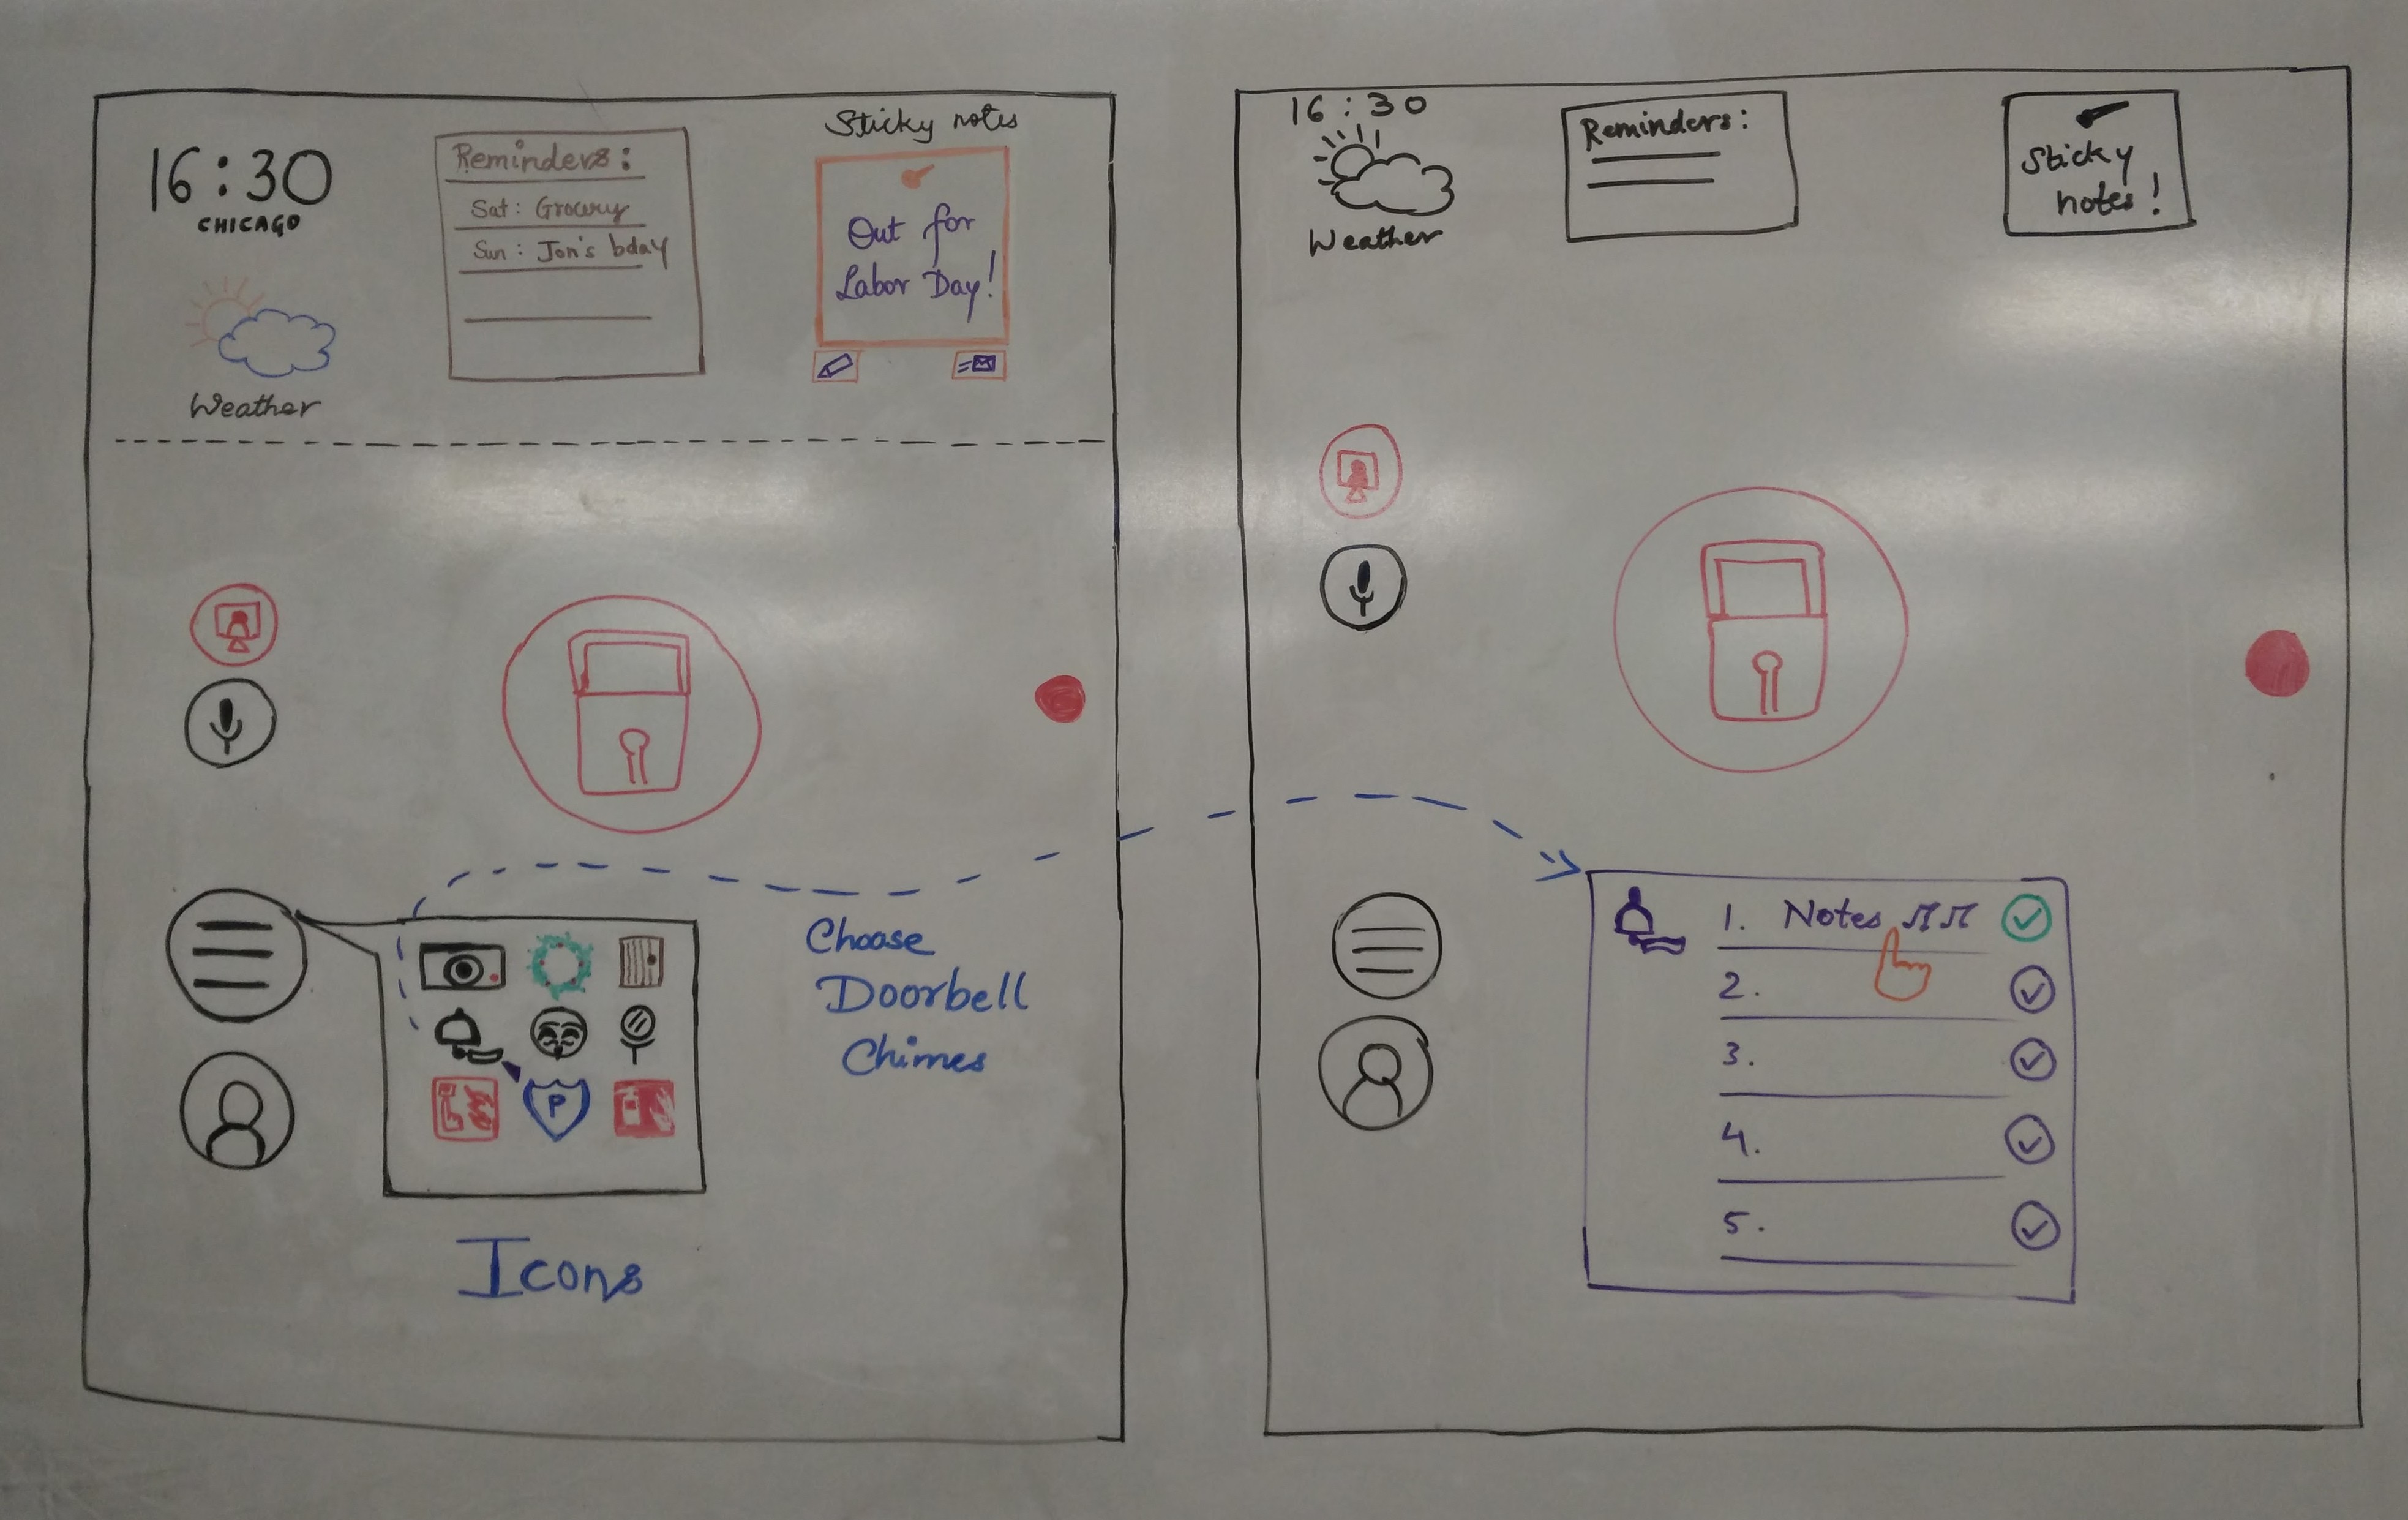 16:30
CHICAGO
Weather
Reminders:
Sat: Grocery
Sun: Jon's bday
Sticky notes
Out for
Labor Day!
P
Icons
Choose
Doorbell
Chimes
16:30
Weather
Reminders:
Sticky
notes!
1. Notes
2.
3.
4.
5.